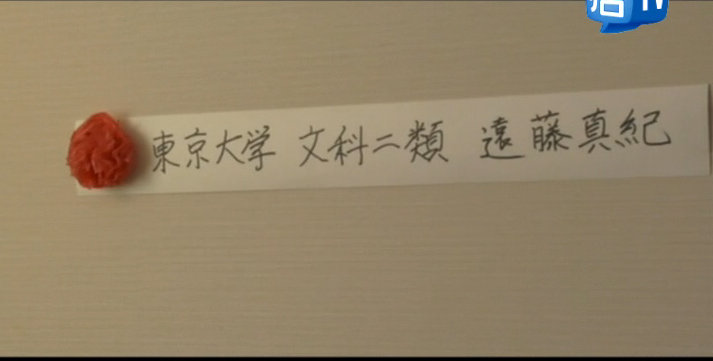 東京大学 文科二類 遠藤真紀
TV